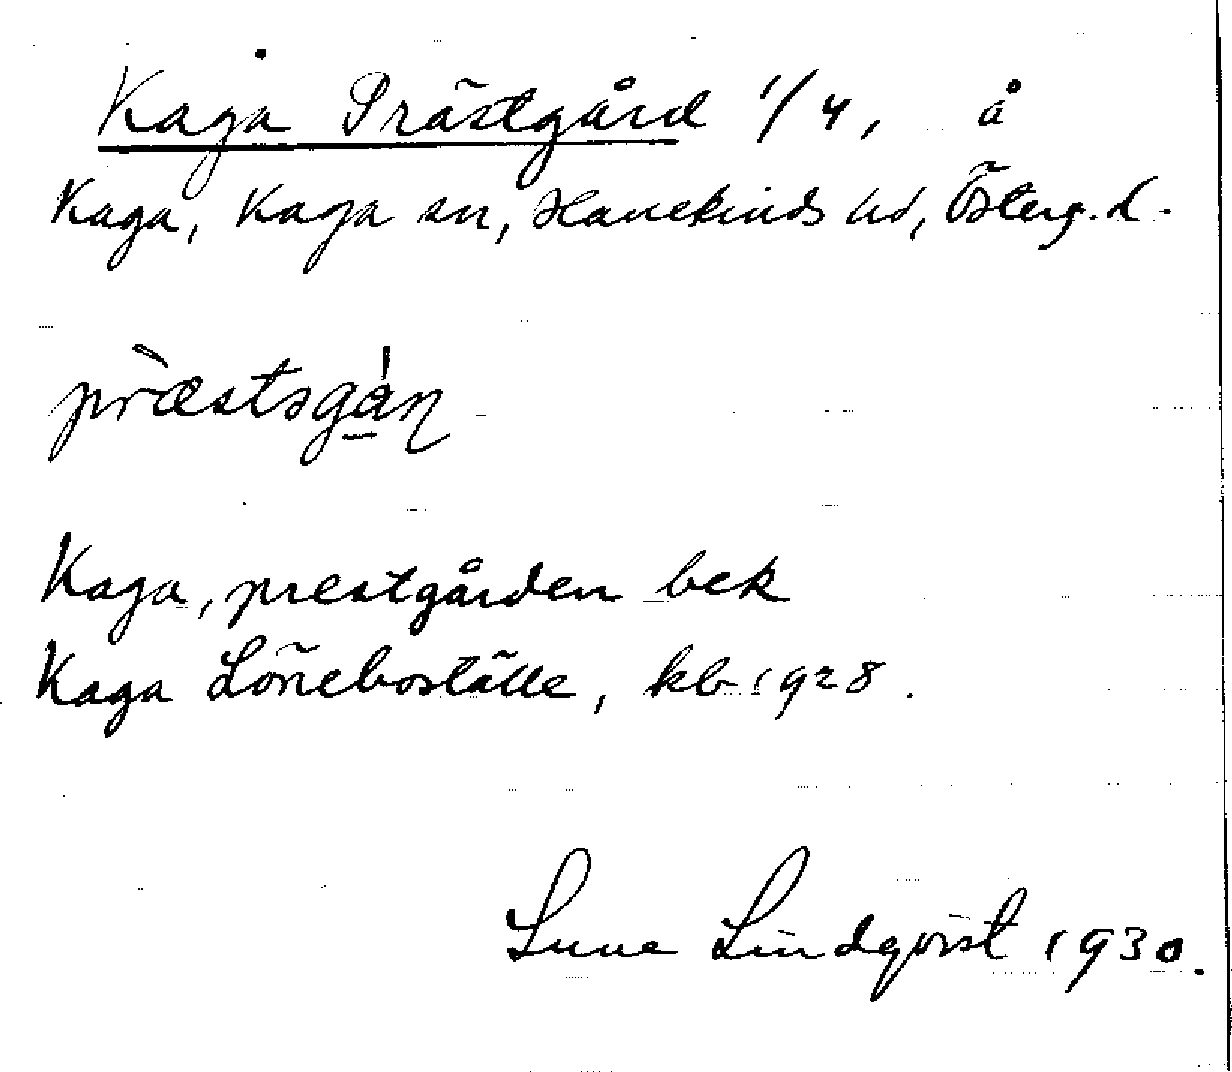 Kaga Prästgård 1/4, å
Kaga, Kaga sn, Hanekinds hd, Österg. l.
præstsgán
Kaga, prestgården bek
Kaga Löneboställe, kb 1928.
Sune Lindqvist 1930.